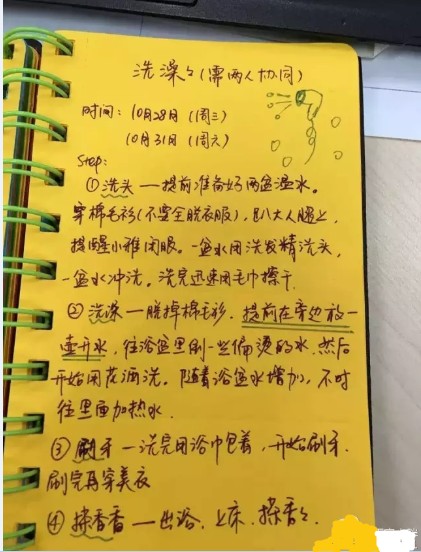 洗澡々(需两人协同)
时间: 10月28日 (周三)
10月31日 (周六)
Step:
①洗头—提前准备好两盆温水。
穿棉毛衫(不要全脱衣服),趴大人腿上,
提醒小雅闭眼。一盆水用洗发精洗头,
一盆水冲洗。洗完迅速用毛巾擦干.
②洗澡—脱掉棉毛衫.提前在旁边放一
壶开水,往浴盆里倒一些偏烫的水.然后
开始用花洒洗。随着浴盆水增加,不时
往里面加热水.
③刷牙—洗完用浴巾包着,开始刷牙.
刷完再穿美衣
④擦香香—出浴.上床.擦香々.